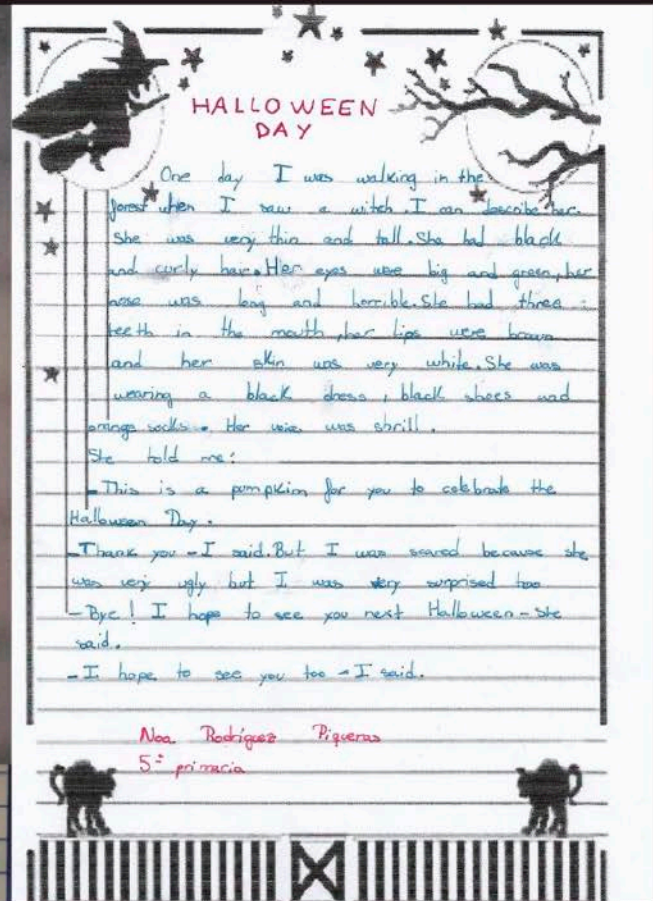 HALLOWEEN
DAY
One day I was walking in the
forest when I saw a witch. I can describe her.
She was very thin and tall. She had black
and curly hair. Her eyes were big and green, her
nose was long and horrible. She had three
teeth in the mouth, her lips were brown
and her skin was very white. She was
wearing a black dress, black shoes and
orange socks. Her voice was shrill.
She told me:
-This is a pumpkim for you to celebrate the
Halloween Day.
-Thank you - I said. But I was scared because she
was very ugly but I was very surprised too
-Bye! I hope to see you next Halloween - She
said.
-I hope to see you too - I said.
Noa Rodríguez Piqueras
5º primaria